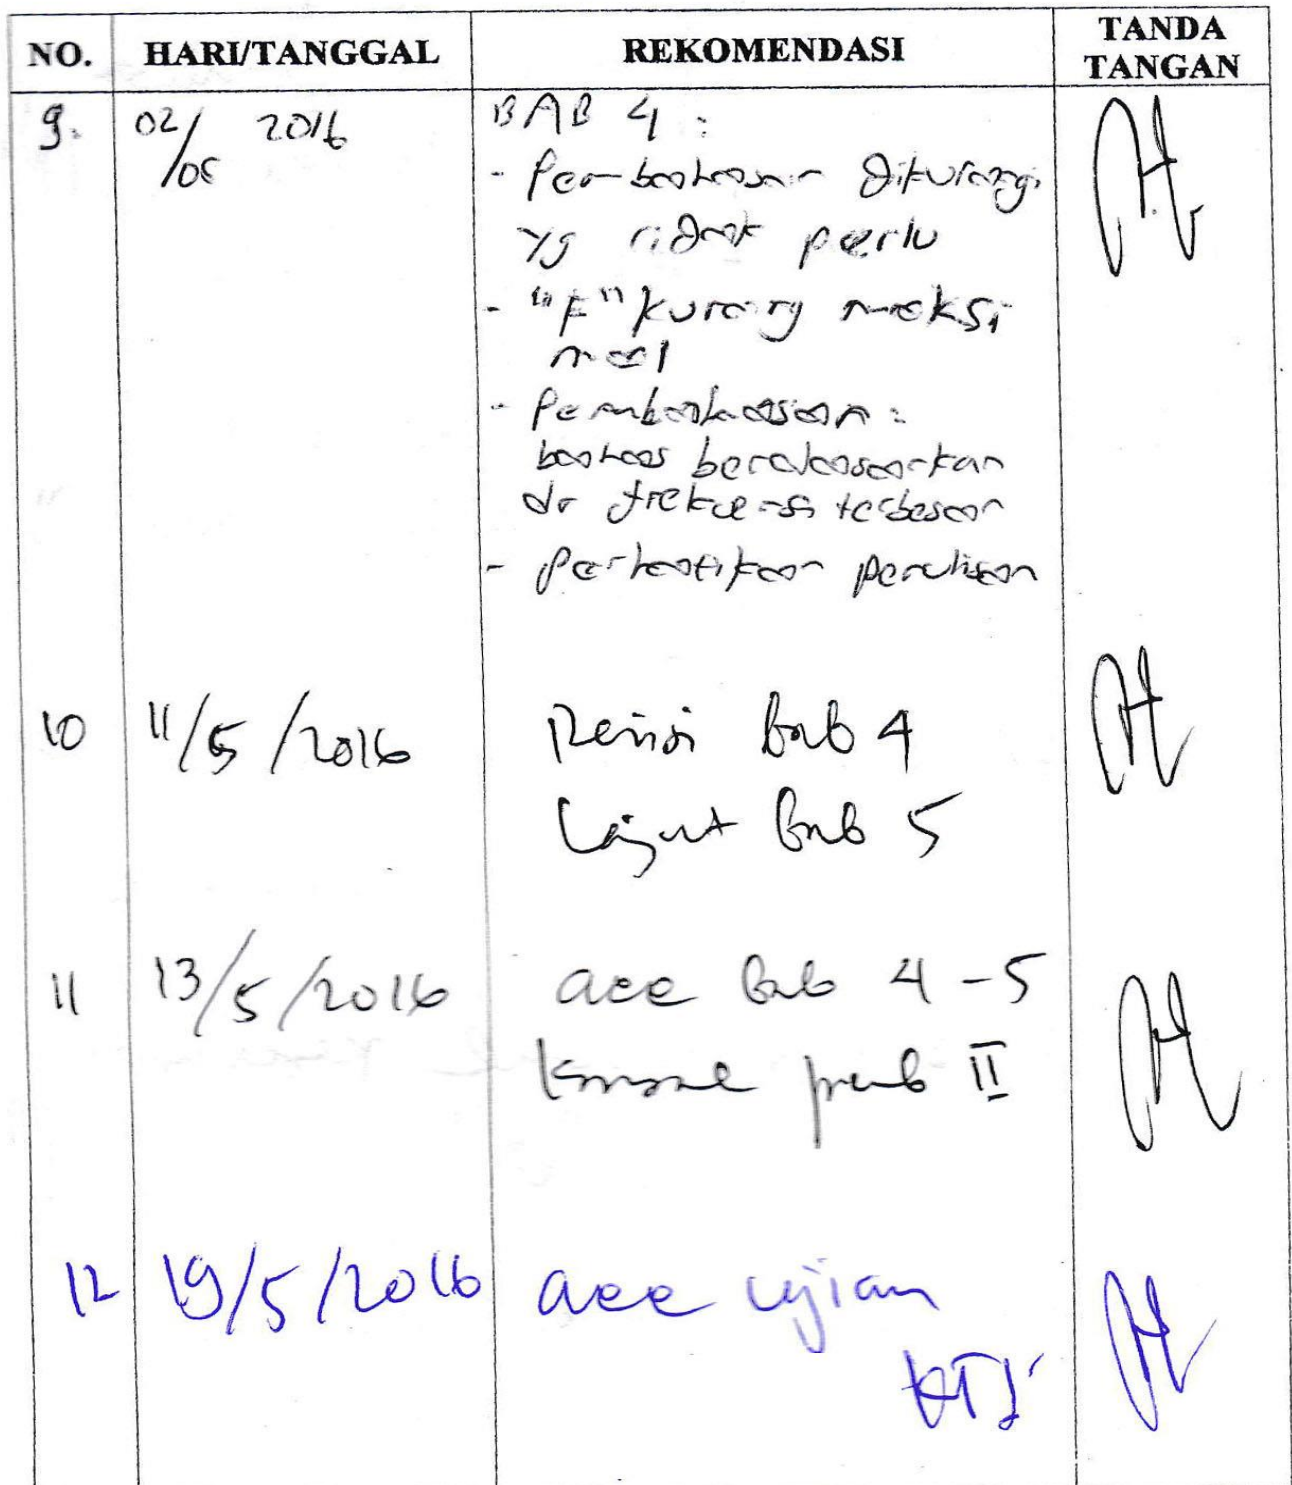 NO. HARI/TANGGAL REKOMENDASI TANDA TANGAN
9. 02/05 2016 BAB 4 :
- Pembahasan dikurangi
yg tidak perlu
- "F" kurang maksi
mal
- Pembahasan :
bahas berdasarkan
dr frekuensi terbesar
- Perhatikan penulisan
10 11/5/2016 Revisi bab 4
Lanjut bab 5
11 13/5/2016 acc bab 4-5
Konsul pemb II
12 19/5/2016 acc ujian
KTI